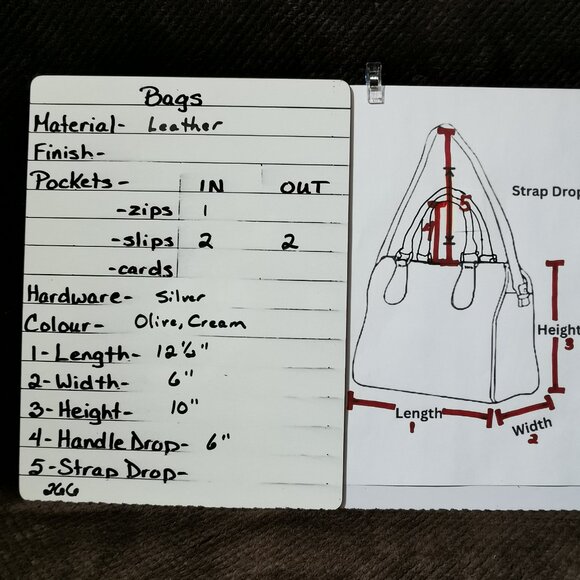 Bags
Material- Leather
Finish-
Pockets- IN OUT
-zips 1
-slips 2 2
-cards
Hardware- Silver
Colour- Olive, Cream
1-Length-
2-Width- 6"
3-Height- 10"
4-Handle Drop- 6"
5-Strap Drop-
266
Strap Drop
5
4
Height
3
Length
1
Width
2